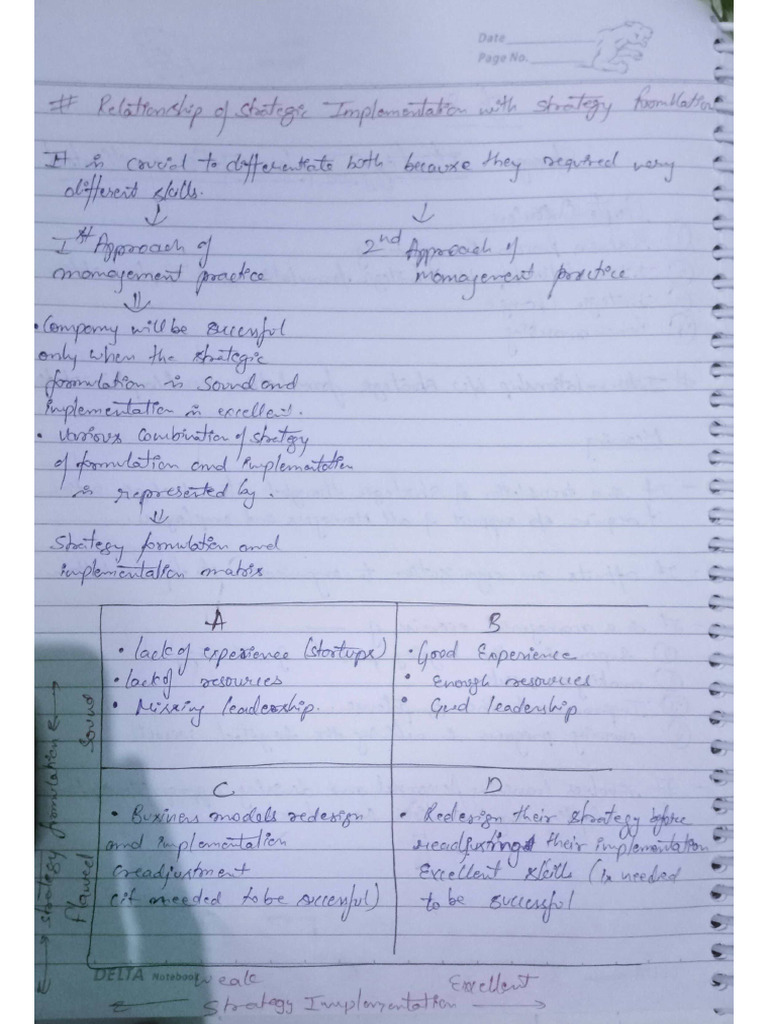 Date
Page No.
# Relationship of Strategic Implementation with strategy formulation
It is crucial to differentiate both because they required very
different skills.
↓ ↓
1st Approach of
management practice
2nd Approach of
management practice
⇓
• Company will be sucessful
only when the strategic
formulation is sound and
implementation is excellent.
• various combination of strategy
of formulation and implementation
is represented by.
⇓
Strategy formulation and
implementation matrix
A
• lack of experience (startups)
• lack of resources
• Missing leadership.
B
• Good Experience
• Enough resources
• Gud leadership
C
• Business models redesign
and implementation
readjustment
(if needed to be successful)
D
• Redesign their strategy before
readjusting their implementation
Excellent skills (is needed
to be successful
← strategy formulation ←→
Flawed Sound
DELTA Notebook
weak Excellent
← Strategy Implementation →